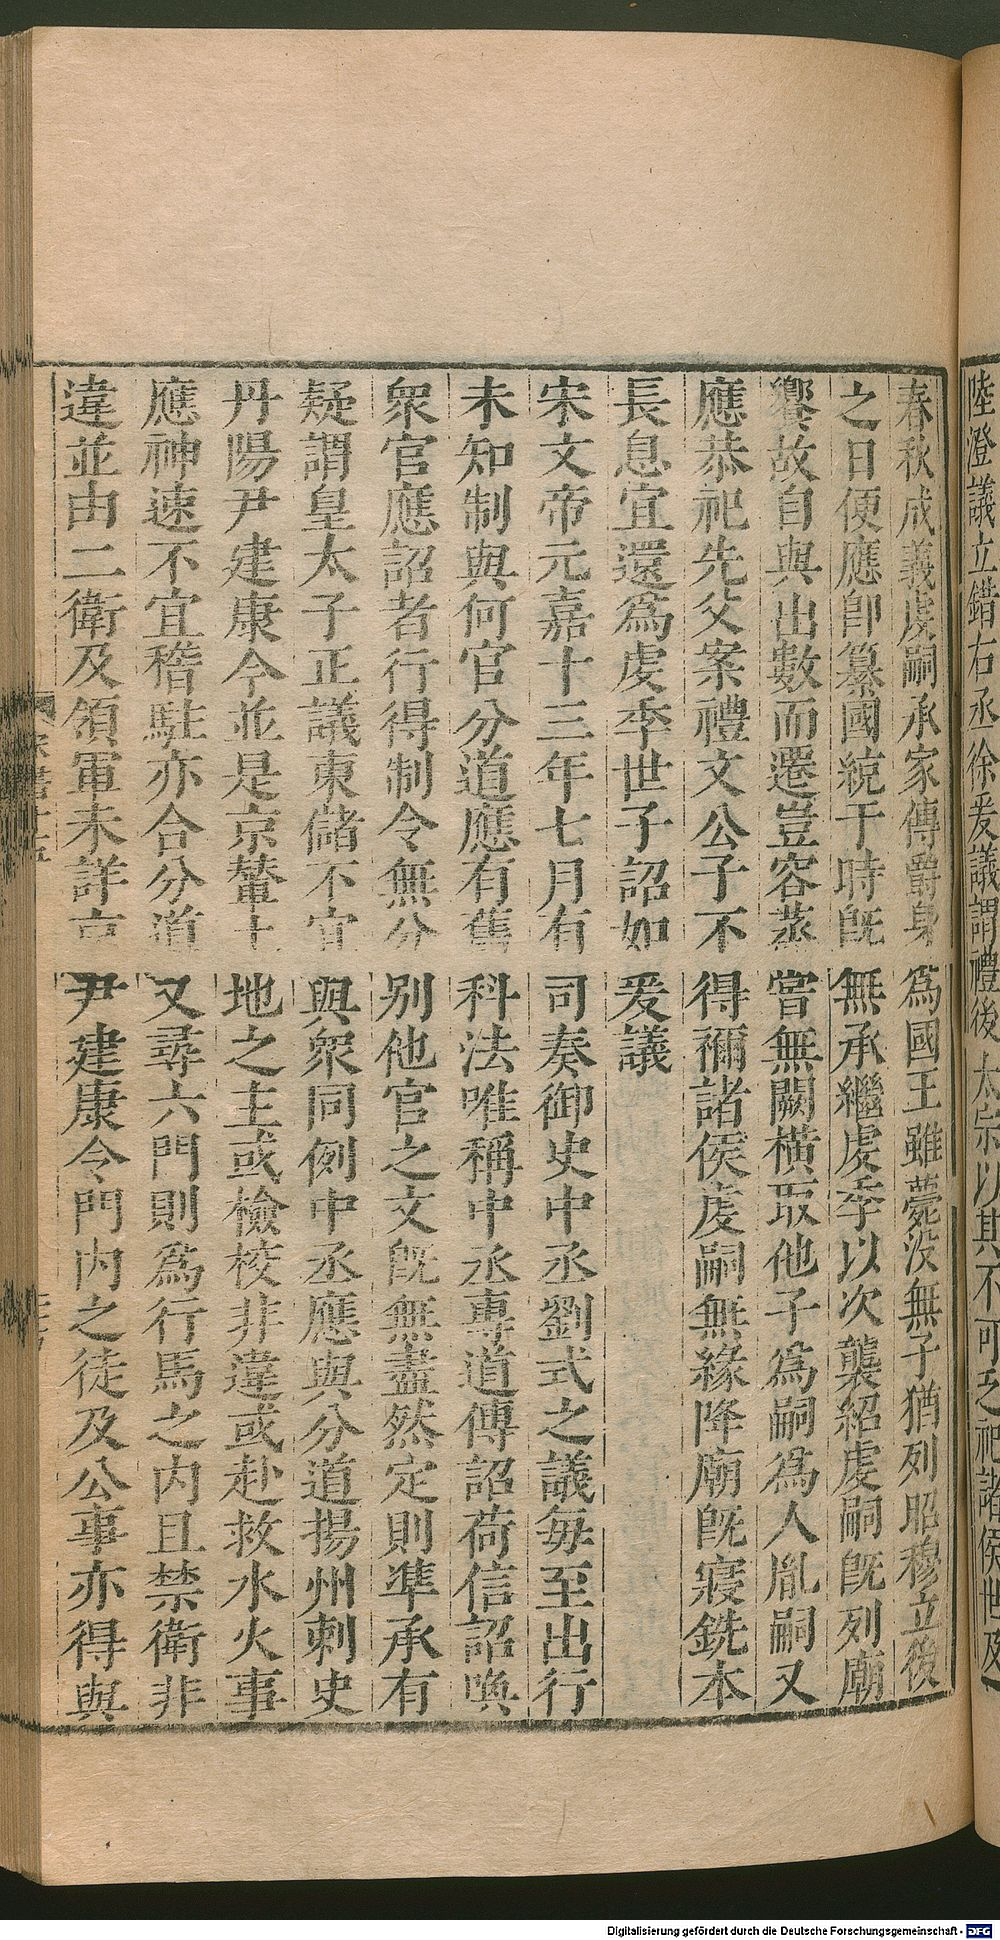 陸澄議立錯右丞徐爰議謂禮後太宗以其不可乏祀諸侯世及
春秋成義虔嗣承家傳爵身爲國王雖薨没無子猶列昭穆立後
之日便應即纂國統于時旣無承繼虔季以次襲紹虔嗣旣列廟
饗故自與出數而遷豈容蒸嘗無闕橫取他子爲嗣爲人胤嗣又
應恭祀先父案禮文公子不得禰諸侯虔嗣無緣降廟旣寢銑本
長息宜還爲虔季世子詔如爰議
宋文帝元嘉十三年七月有司奏御史中丞劉式之議每至出行
未知制與何官分道應有舊科法唯稱中丞專道傳詔荷信詔喚
衆官應詔者行得制令無分别他官之文旣無盡然定則準承有
疑謂皇太子正議東儲不宜與衆同例中丞應與分道揚州刺史
丹陽尹建康令並是京輦土地之主或檢校非違或赴救水火事
應神速不宜稽駐亦合分道又尋六門則爲行馬之内且禁衛非
違並由二衛及領軍未詳京尹建康令門内之徒及公事亦得與
Digitalisierung gefördert durch die Deutsche Forschungsgemeinschaft - DFG